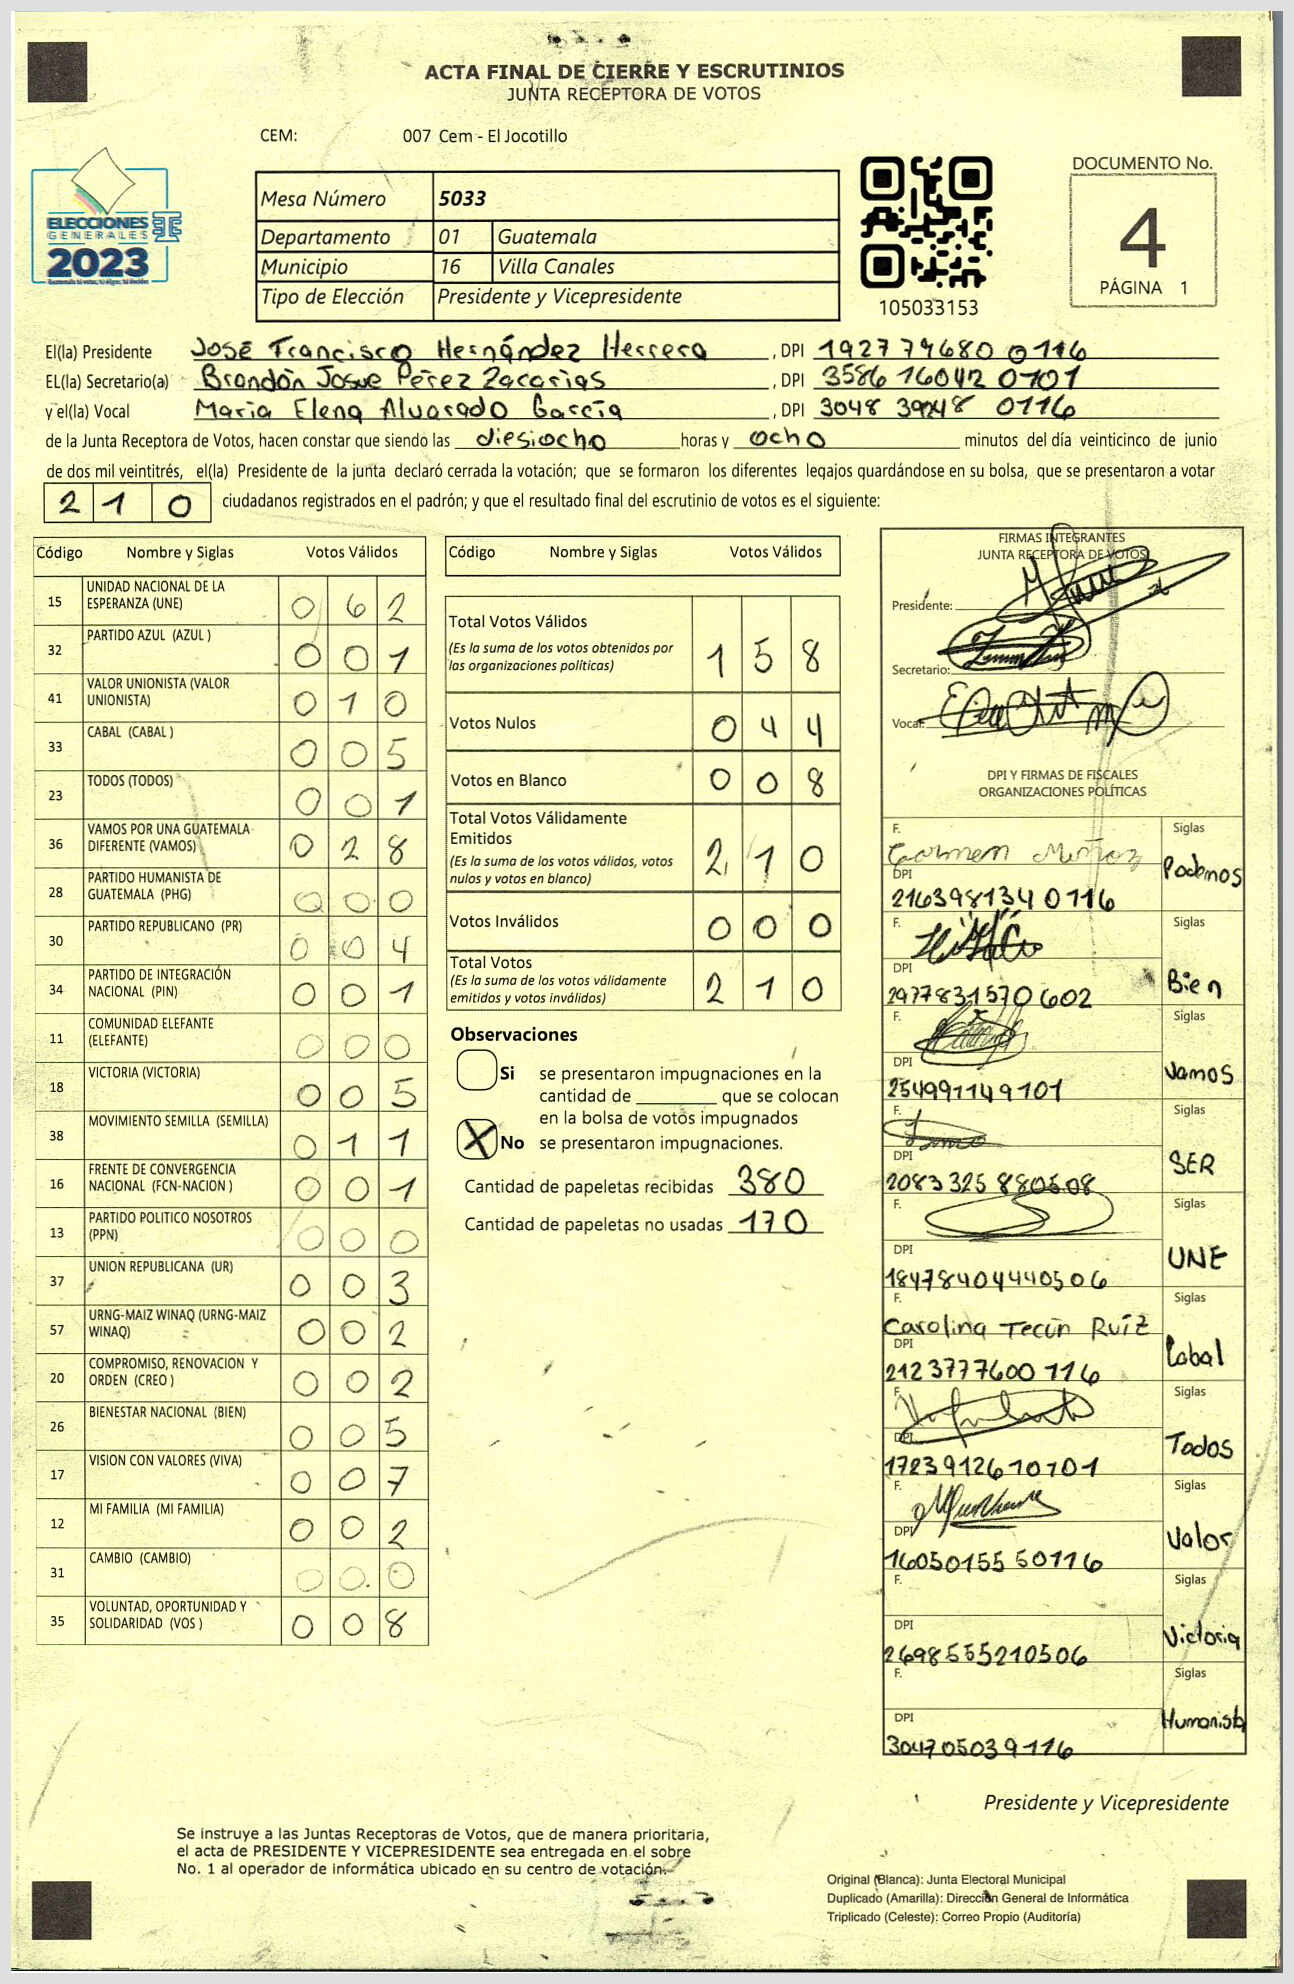 ACTA FINAL DE CIERRE Y ESCRUTINIOS
JUNTA RECEPTORA DE VOTOS
CEM: 007 Cem - El Jocotillo
ELECCIONES
GENERALES
2023
Mesa Número 5033
Departamento 01 Guatemala
Municipio 16 Villa Canales
Tipo de Elección Presidente y Vicepresidente
105033153
DOCUMENTO No.
4
PÁGINA 1
El(la) Presidente José Francisco Hernández Herrera, DPI 192774680 0116
EL(la) Secretario(a) Brandón Josue Pérez Zacarias, DPI 3586 16042 0101
y el(la) Vocal Maria Elena Alvarado García, DPI 3048 0116
de la Junta Receptora de Votos, hacen constar que siendo las diesiocho horas y ocho minutos del día veinticinco de junio
de dos mil veintitrés, el(la) Presidente de la junta declaró cerrada la votación; que se formaron los diferentes legajos guardándose en su bolsa, que se presentaron a votar
2 1 0 ciudadanos registrados en el padrón; y que el resultado final del escrutinio de votos es el siguiente:
Código Nombre y Siglas Votos Válidos
15 UNIDAD NACIONAL DE LA ESPERANZA (UNE) 0 6 2
32 PARTIDO AZUL (AZUL ) 0 0 1
41 VALOR UNIONISTA (VALOR UNIONISTA) 0 1 0
33 CABAL (CABAL ) 0 0 5
23 TODOS (TODOS) 0 0 1
36 VAMOS POR UNA GUATEMALA DIFERENTE (VAMOS) 0 2 8
28 PARTIDO HUMANISTA DE GUATEMALA (PHG) 0 0 0
30 PARTIDO REPUBLICANO (PR) 0 0 4
34 PARTIDO DE INTEGRACIÓN NACIONAL (PIN) 0 0 1
11 COMUNIDAD ELEFANTE (ELEFANTE) 0 0 0
18 VICTORIA (VICTORIA) 0 0 5
38 MOVIMIENTO SEMILLA (SEMILLA) 0 1 1
16 FRENTE DE CONVERGENCIA NACIONAL (FCN-NACION ) 0 0 1
13 PARTIDO POLITICO NOSOTROS (PPN) 0 0 0
37 UNION REPUBLICANA (UR) 0 0 3
57 URNG-MAIZ WINAQ (URNG-MAIZ WINAQ) 0 0 2
20 COMPROMISO, RENOVACION Y ORDEN (CREO ) 0 0 2
26 BIENESTAR NACIONAL (BIEN) 0 0 5
17 VISION CON VALORES (VIVA) 0 0 7
12 MI FAMILIA (MI FAMILIA) 0 0 2
31 CAMBIO (CAMBIO) 0 0 0
35 VOLUNTAD, OPORTUNIDAD Y SOLIDARIDAD (VOS ) 0 0 8
Código Nombre y Siglas Votos Válidos
Total Votos Válidos 1 5 8
(Es la suma de los votos obtenidos por
las organizaciones políticas)
Votos Nulos 0 4 4
Votos en Blanco 0 0 8
Total Votos Válidamente
Emitidos 2 1 0
(Es la suma de los votos válidos, votos
nulos y votos en blanco)
Votos Inválidos 0 0 0
Total Votos 2 1 0
(Es la suma de los votos válidamente
emitidos y votos inválidos)
Observaciones
Si se presentaron impugnaciones en la
cantidad de ________ que se colocan
en la bolsa de votos impugnados
X No se presentaron impugnaciones.
Cantidad de papeletas recibidas 380
Cantidad de papeletas no usadas 170
FIRMAS INTEGRANTES
JUNTA RECEPTORA DE VOTOS
Presidente:
Secretario:
Vocal:
DPI Y FIRMAS DE FISCALES
ORGANIZACIONES POLÍTICAS
F. Carmen Muñoz Siglas
DPI 216398134 0116 Podemos
F. Siglas
DPI 2977831570602 Bien
F. Siglas
DPI 254991149101 Vamos
F. Siglas
DPI 2083 325 880508 SER
F. Siglas
DPI 1847840440506 UNE
F. Carolina Tecún Ruíz Siglas
DPI 2123777600116 Cabal
F. Siglas
DPI 1723912610101 Todos
F. Siglas
DPI 1605015550116 Valor
F. Siglas
DPI 2698555210506 Victoria
F. Siglas
DPI 304705039116 Humanista
Presidente y Vicepresidente
Se instruye a las Juntas Receptoras de Votos, que de manera prioritaria,
el acta de PRESIDENTE Y VICEPRESIDENTE sea entregada en el sobre
No. 1 al operador de informática ubicado en su centro de votación.
Original (Blanca): Junta Electoral Municipal
Duplicado (Amarilla): Dirección General de Informática
Triplicado (Celeste): Correo Propio (Auditoría)